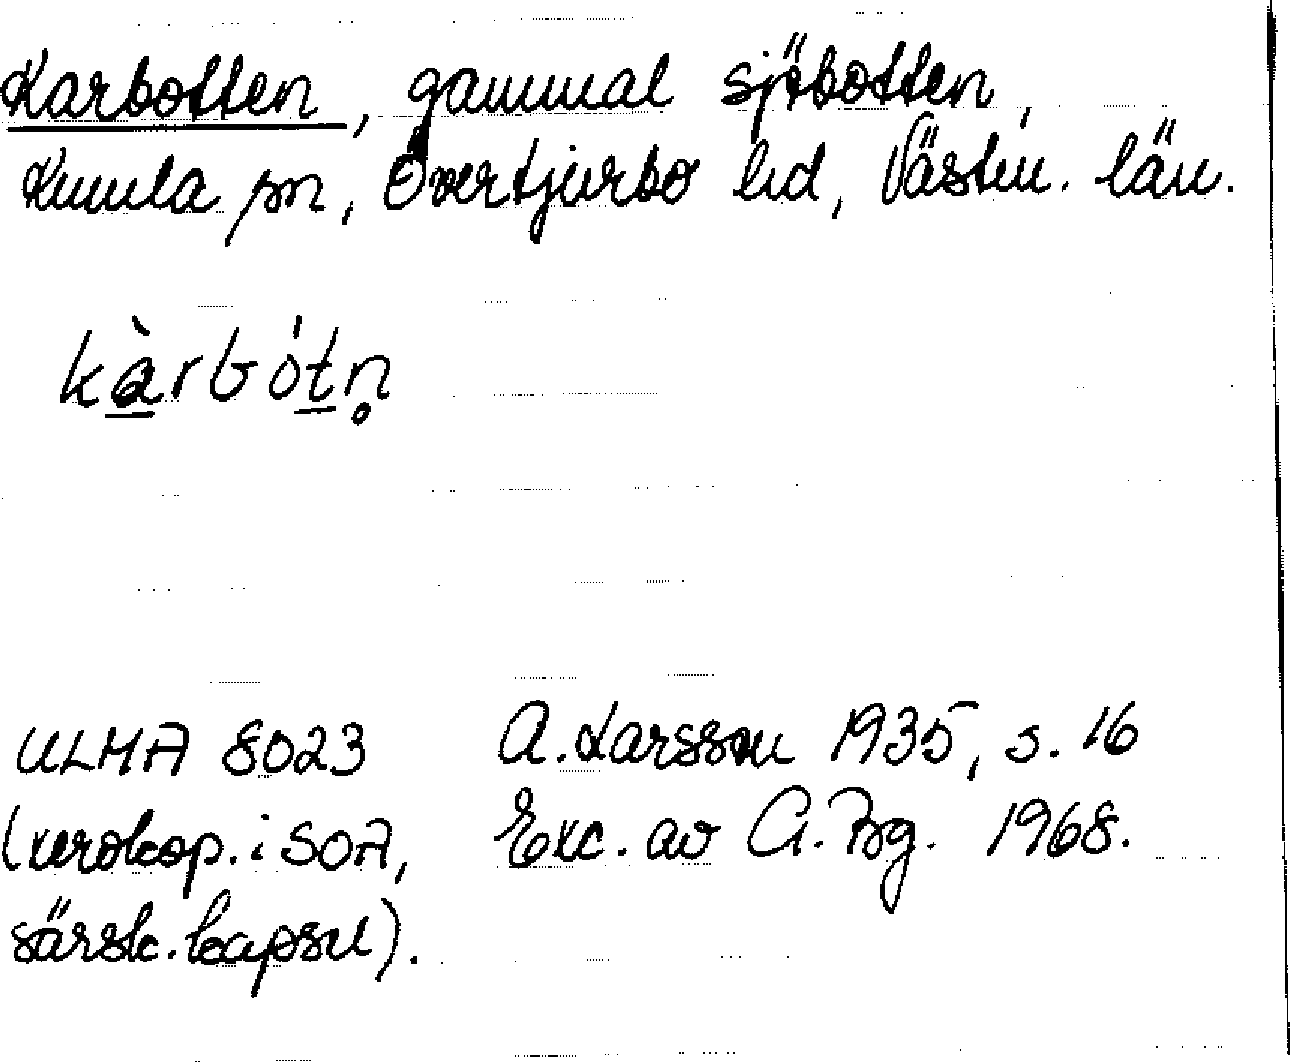 Karbotten, gammal sjöbotten,
Kumla sn, Övertjurbo hd, Västm. län.
kàrbótn̥
ULMA 8023 A. Larsson 1935, s. 16
(xerokop. i SOA, Exc. av G. Bg. 1968.
särsk. kapsel).